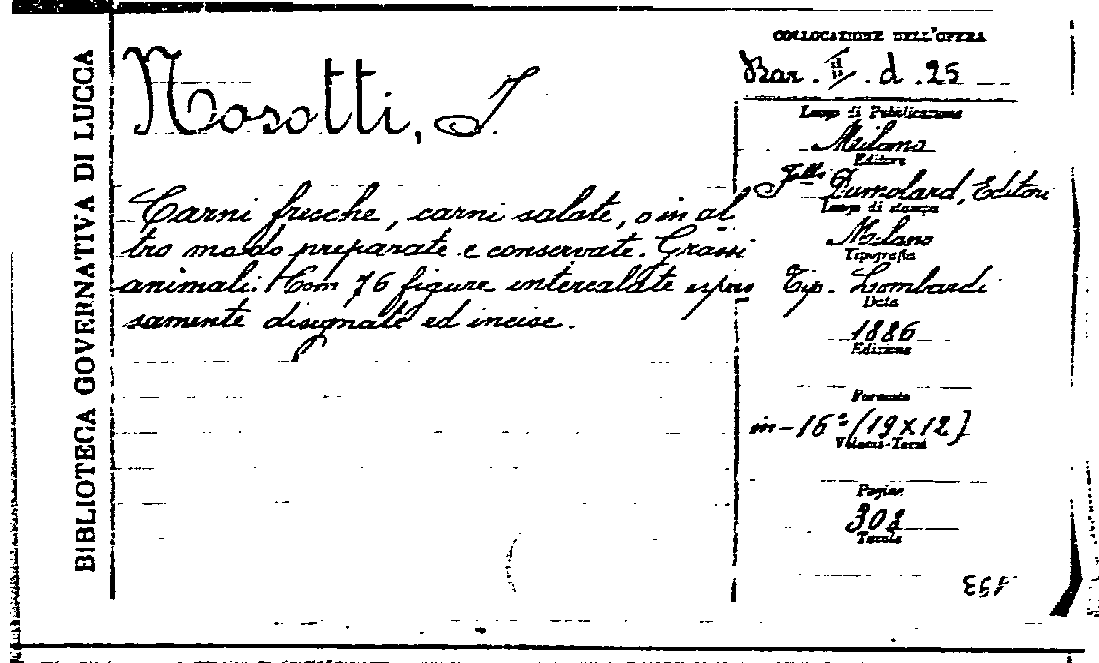 BIBLIOTECA GOVERNATIVA DI LUCCA
Nosotti, I.
Carni fresche, carni salate, o in al
tro modo preparate e conservate. Grassi
animali. Con 76 figure intercalate espres
samente disegnate ed incise.
COLLOCAZIONE DELL'OPERA
Bar. II. d. 25
Luogo di Pubblicazione
Milano
Editore
F.lli Dumolard, Editori
Luogo di stampa
Milano
Tipografia
Tip. Lombardi
Data
1886
Edizione
Formato
in-16° (19x12)
Volumi-Tomi
Pagine
308
Tavole